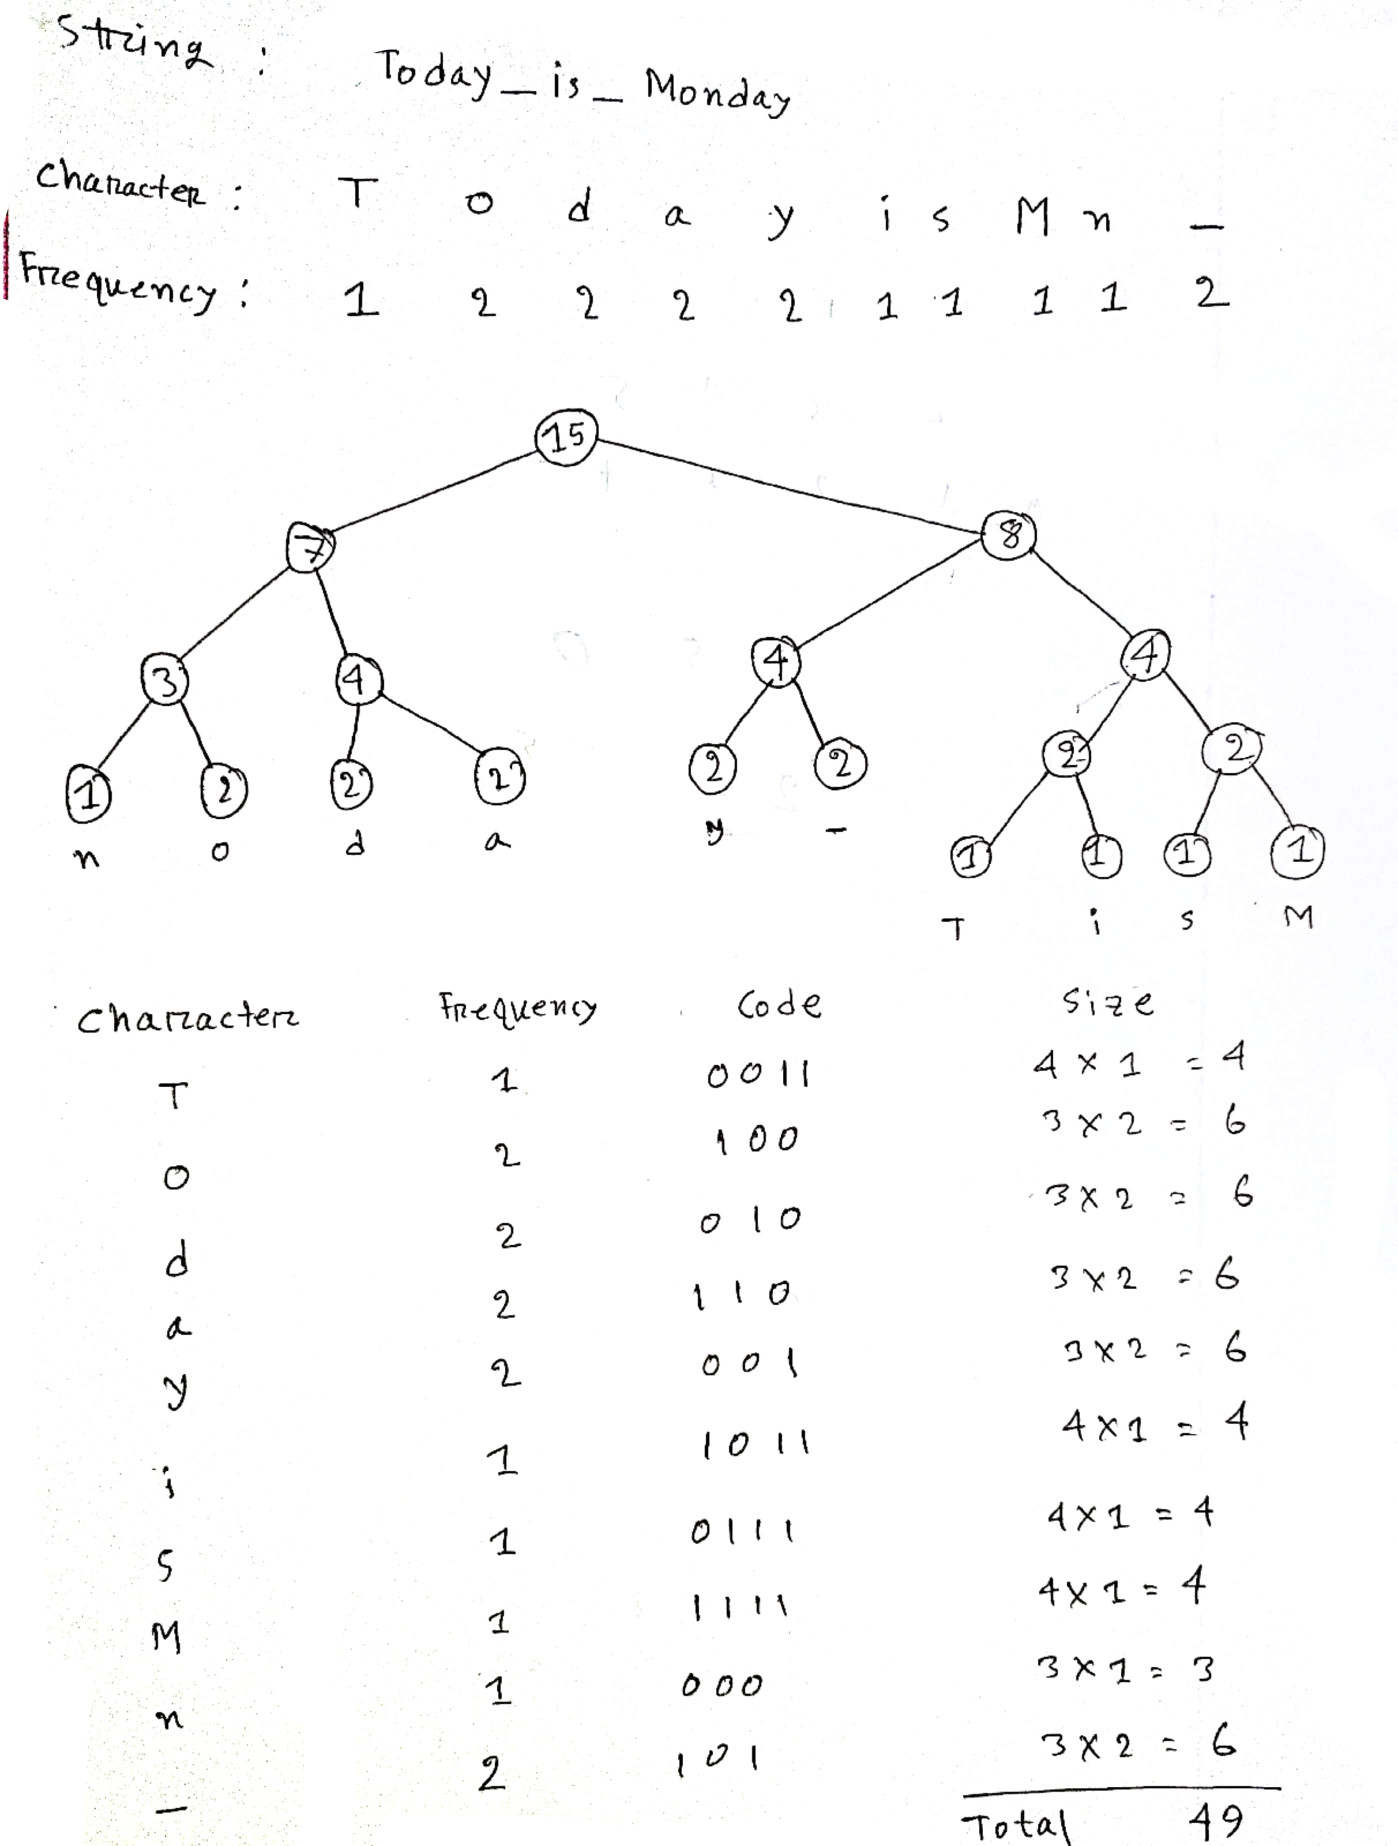 String : Today_is_Monday
Character : T o d a y i s M n _
Frequency : 1 2 2 2 2 1 1 1 1 2
15
7 8
3 4 4 4
1 2 2 2 2 2 2 2
n o d a y _
1 1 1 1
T i s M
Character Frequency Code Size
T 1 0011 4 × 1 = 4
o 2 100 3 × 2 = 6
d 2 010 3 × 2 = 6
a 2 110 3 × 2 = 6
y 2 001 3 × 2 = 6
i 1 1011 4 × 1 = 4
s 1 0111 4 × 1 = 4
M 1 1111 4 × 1 = 4
n 1 000 3 × 1 = 3
_ 2 101 3 × 2 = 6
Total 49